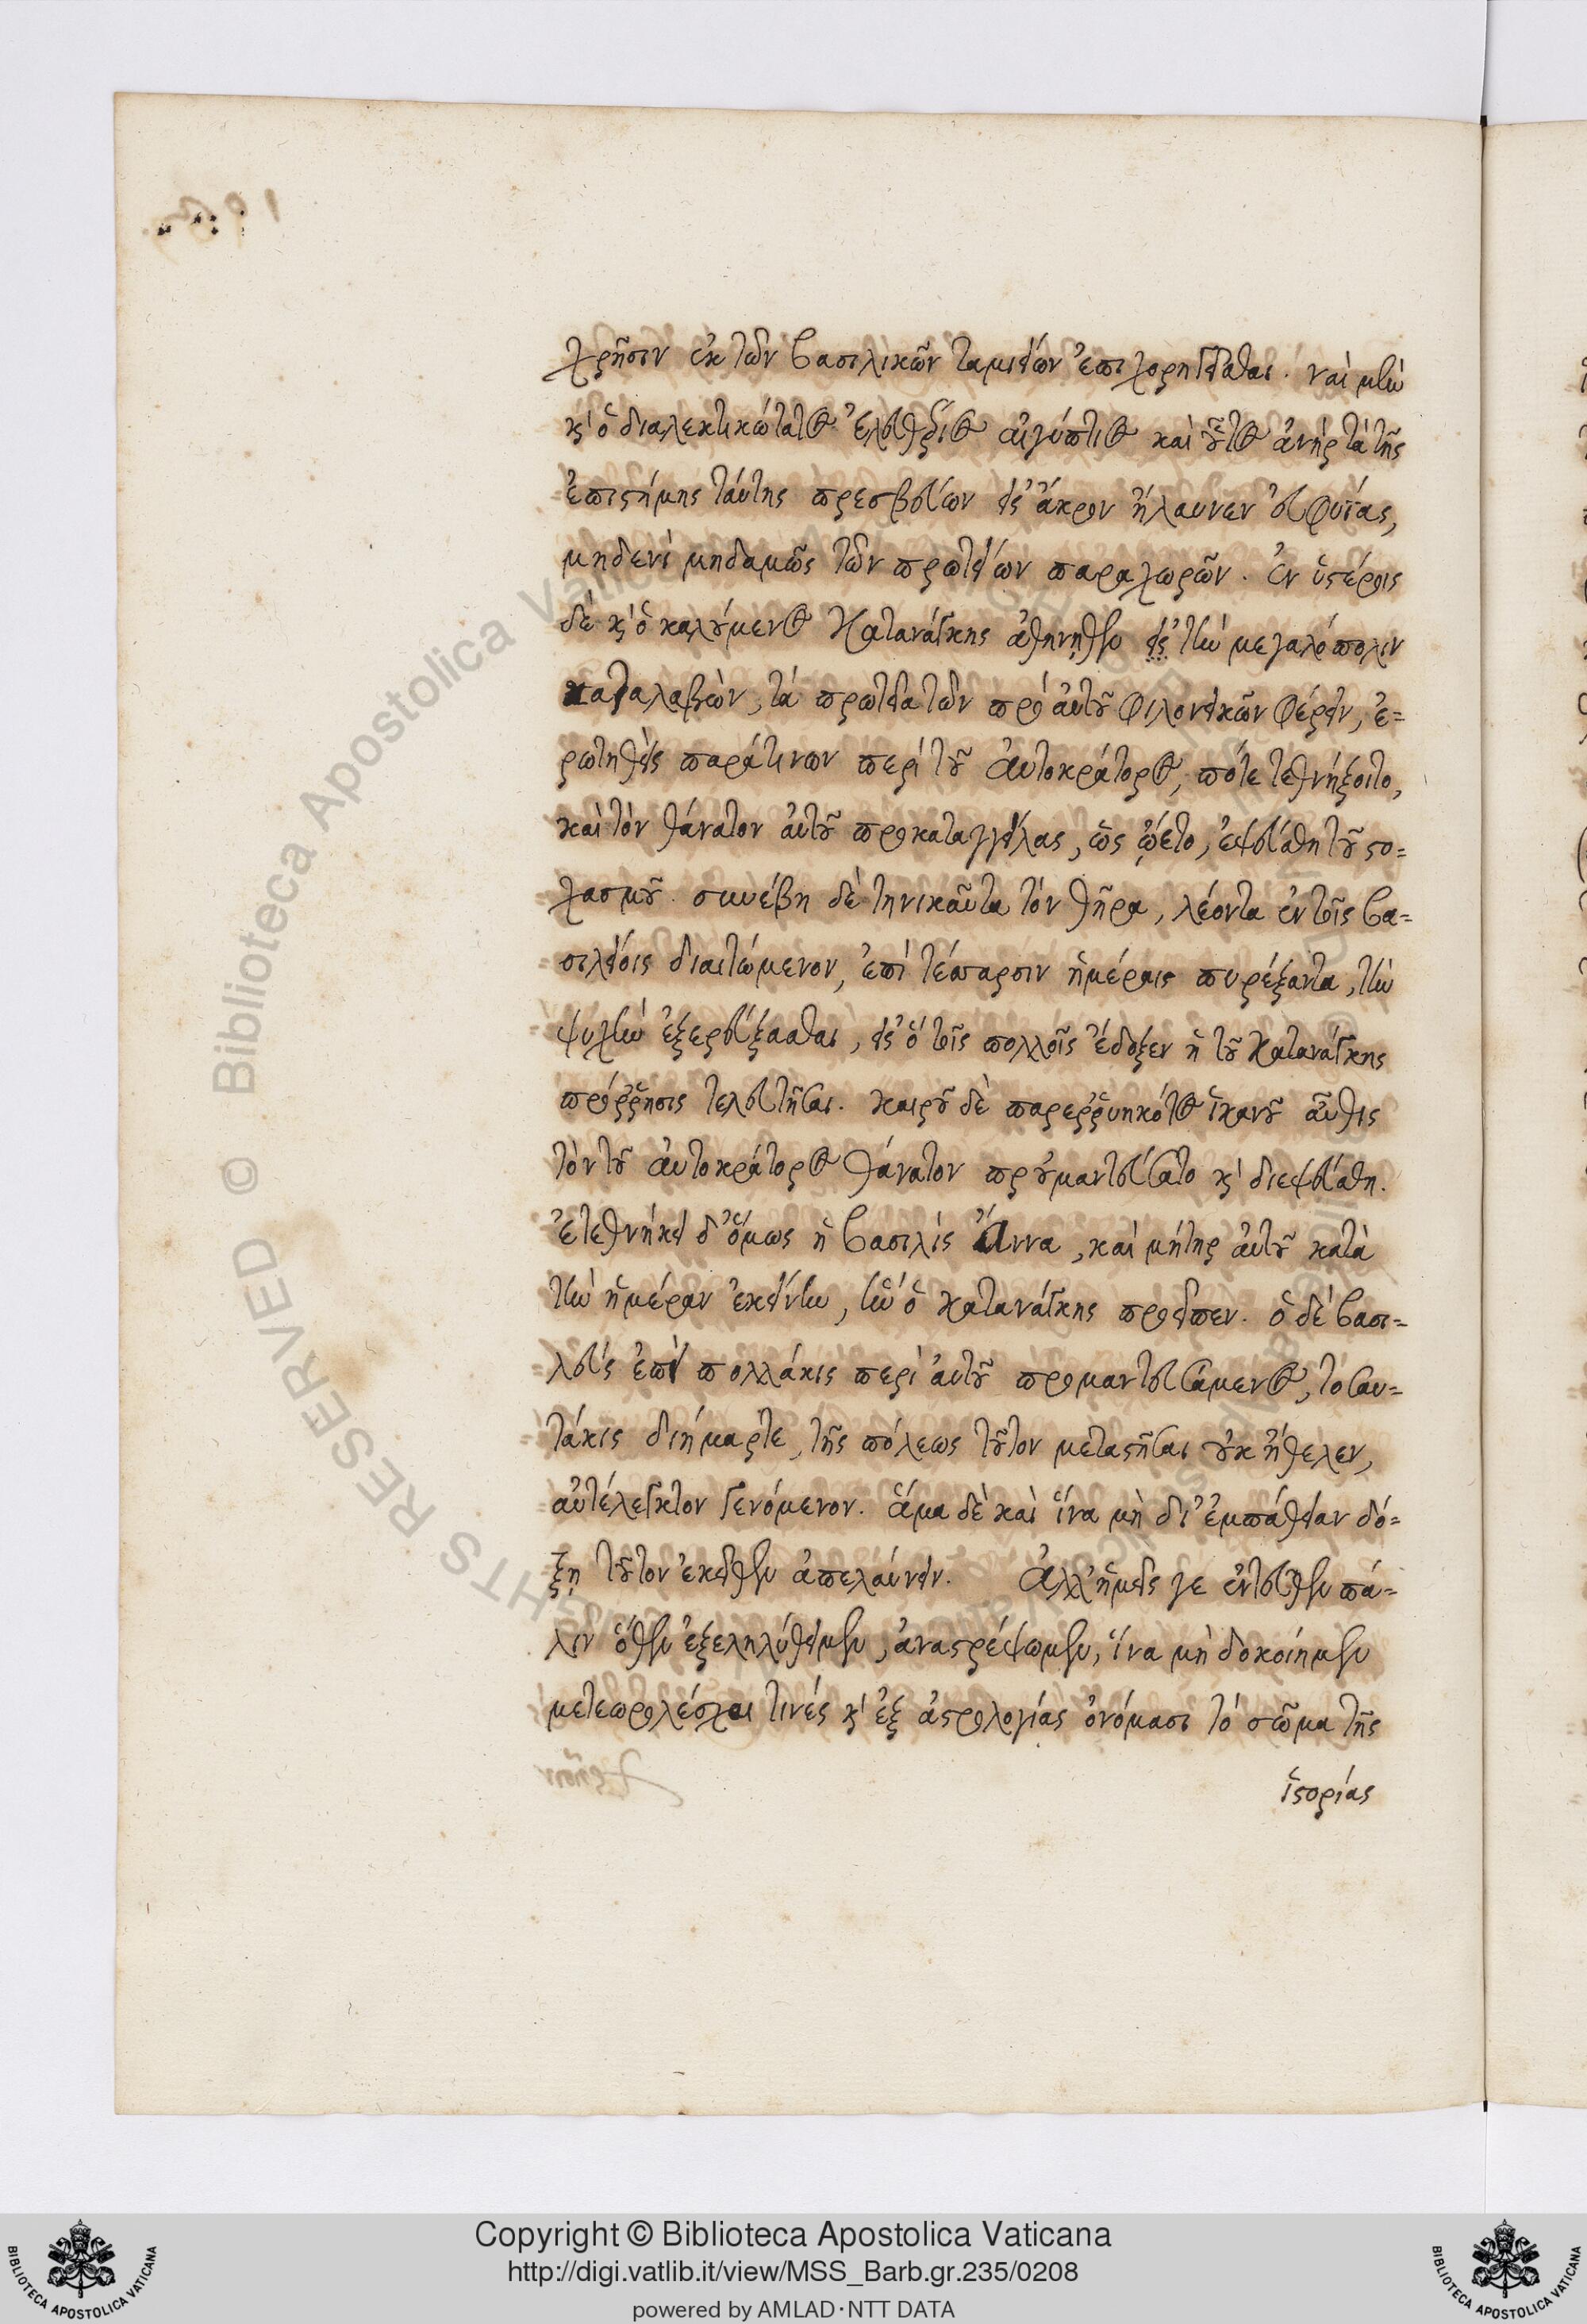 χρῆσιν ἐκ τῶν βασιλικῶν ταμιείων ἐπιχορηγεῖσθαι. ναὶ μὴν
κ' ὁ διαλεκτικώτατος Ἐλευθέριος αἰγύπτιος καὶ οὗτος ἀνὴρ τὰ τῆς
ἐπιστήμης ταύτης πρεσβεύων εἰς ἄκρον ἤλαυνεν εὐφυΐας,
μηδενὶ μηδαμῶς τῶν πρωτείων παραχωρῶν. Ἐν ὑστέροις
δὲ κ' ὁ καλούμενος Κατανάγκης ἀθήνηθεν εἰς τὴν μεγαλόπολιν
καταλαβὼν, τὰ πρωτεῖα τῶν πρὸ αὐτοῦ φιλονεικῶν φέρειν, ἐ=
ρωτηθεὶς παρά τινων περὶ τοῦ αὐτοκράτορος, πότε τεθνήξοιτο,
καὶ τὸν θάνατον αὐτοῦ προκαταγγείλας, ὡς ᾤετο, ἐψεύσθη τοῦ στο=
χασμοῦ. συνέβη δὲ τηνικαῦτα τὸν θῆρα, λέοντα ἐν τοῖς βα=
σιλείοις διαιτώμενον, ἐπὶ τέσσαρσιν ἡμέραις πυρέξαντα, τὴν
ψυχὴν ἐξερεύξασθαι, εἰς ὃ τοῖς πολλοῖς ἔδοξεν ἡ τοῦ Κατανάγκης
πρόῤῥησις τελευτῆσαι. Καιροῦ δὲ παρεῤῥυηκότος ἱκανοῦ αὖθις
τὸν τοῦ αὐτοκράτορος θάνατον προὐμαντεύσατο κ' διεψεύσθη.
Ἐτεθνήκει δ' ὅμως ἡ βασιλὶς Ἄννα, καὶ μήτηρ αὐτοῦ κατὰ
τὴν ἡμέραν ἐκείνην, ἣν ὁ Κατανάγκης προεῖπεν. ὁ δὲ βασι=
λεὺς ἐπεὶ πολλάκις περὶ αὐτοῦ προμαντευσάμενος, τοσαυ=
τάκις διήμαρτε, τῆς πόλεως τοῦτον μεταστῆσαι οὐκ ἤθελεν,
αὐτέλεγκτον γενόμενον. ἅμα δὲ καὶ ἵνα μὴ δι' ἐμπάθειαν δό=
ξῃ τοῦτον ἐκεῖθεν ἀπελαύνειν. Ἀλλ' ἡμεῖς γε ἐντεῦθεν πά=
λιν ὅθεν ἐξεληλύθειμεν, ἀναστρέψωμεν, ἵνα μὴ δοκοίημεν
μετεωρολέσχαι τινές κ' ἐξ ἀστρολογίας ὀνόμασι τὸ σῶμα τῆς
ἱστορίας
Copyright © Biblioteca Apostolica Vaticana
http://digi.vatlib.it/view/MSS_Barb.gr.235/0208
powered by AMLAD·NTT DATA